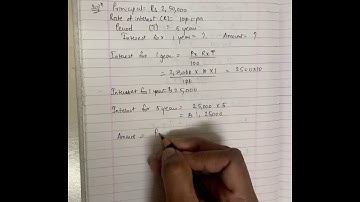 Solⁿ Principal = Rs 2,50,000
Rate of interest (R) = 10 p.c.p.a
Period (T) = 5 years
Interest for 1 year = ? Amount = ?
Interest for 1 year = P x R x T
100
= 2,50,000 x 10 x 1 = 2500x10
100
Interest for 1 year = Rs 25,000
Interest for 5 years = 25,000 x 5
= Rs 1,25000
Amount =